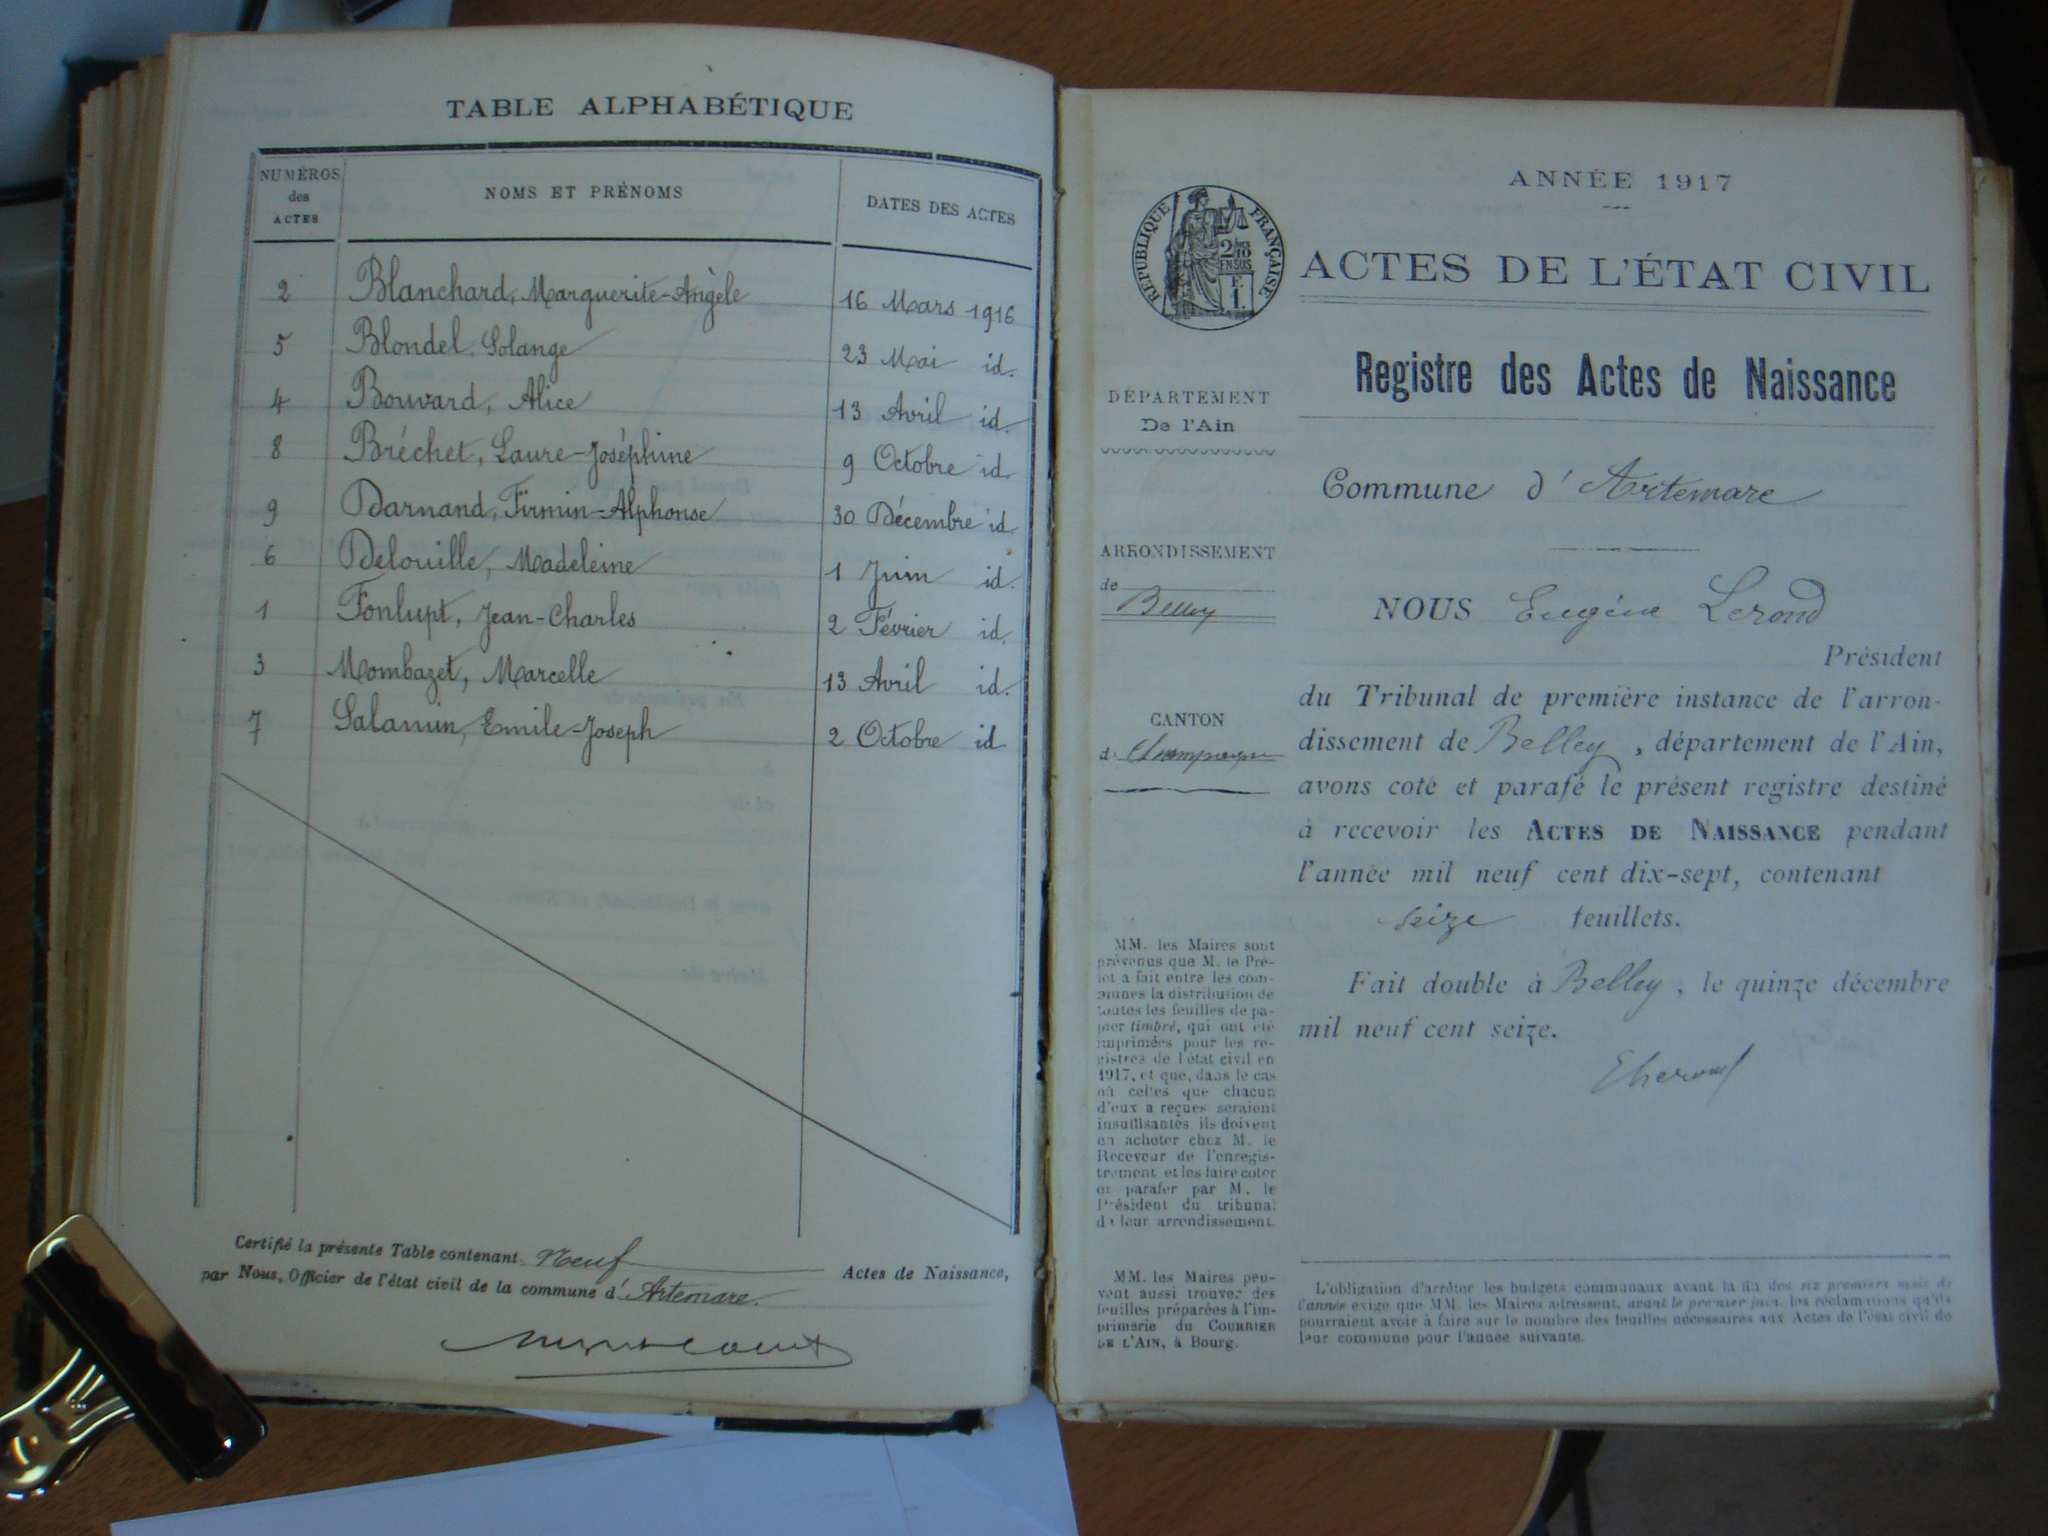 TABLE ALPHABÉTIQUE
NUMÉROS des ACTES
NOMS ET PRÉNOMS
DATES DES ACTES
2 Blanchard, Marguerite-Angèle 16 Mars 1916
5 Blondel, Solange 23 Mai id.
4 Bouvard, Alice 13 Avril id.
8 Bréchet, Laure-Joséphine 9 Octobre id.
9 Darnand, Firmin-Alphonse 30 Décembre id.
6 Delouille, Madeleine 1 Juin id.
1 Fonlupt, Jean-Charles 2 Février id.
3 Mombazet, Marcelle 13 Avril id.
7 Salamin, Emile-Joseph 2 Octobre id.
Certifié la présente Table contenant Neuf Actes de Naissance,
par Nous, Officier de l'état civil de la commune d'Artemare.
ANNÉE 1917
RÉPUBLIQUE FRANÇAISE
2/10 EN SUS
F. 1.
ACTES DE L'ÉTAT CIVIL
Registre des Actes de Naissance
DÉPARTEMENT
De l'Ain
ARRONDISSEMENT
de Belley
CANTON
de Champagne
MM. les Maires sont
prévenus que M. le Pré-
fet a fait entre les com-
munes la distribution de
toutes les feuilles de pa-
pier timbré, qui ont été
imprimées pour les re-
gistres de l'état civil en
1917, et que, dans le cas
où celles que chacun
d'eux a reçues seraient
insuffisantes, ils doivent
en acheter chez M. le
Receveur de l'enregis-
trement et les faire coter
et parafer par M. le
Président du tribunal
de leur arrondissement.
MM. les Maires peu-
vent aussi trouver des
feuilles préparées à l'im-
primerie du COURRIER
DE L'AIN, à Bourg.
Commune d'Artemare
NOUS Eugène Lerond
Président
du Tribunal de première instance de l'arron-
dissement de Belley, département de l'Ain,
avons coté et parafé le présent registre destiné
à recevoir les ACTES DE NAISSANCE pendant
l'année mil neuf cent dix-sept, contenant
seize feuillets.
Fait double à Belley, le quinze décembre
mil neuf cent seize.
L'obligation d'arrêter les budgets communaux avant la fin des six premiers mois de
l'année exige que MM. les Maires adressent, avant le premier juin, les réclamations qu'ils
pourraient avoir à faire sur le nombre des feuilles nécessaires aux Actes de l'état civil de
leur commune pour l'année suivante.